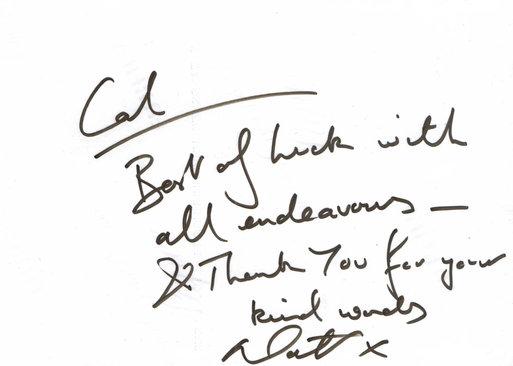 Cal
Best of luck with
all endeavours –
& Thank You for your
kind words
Matt x